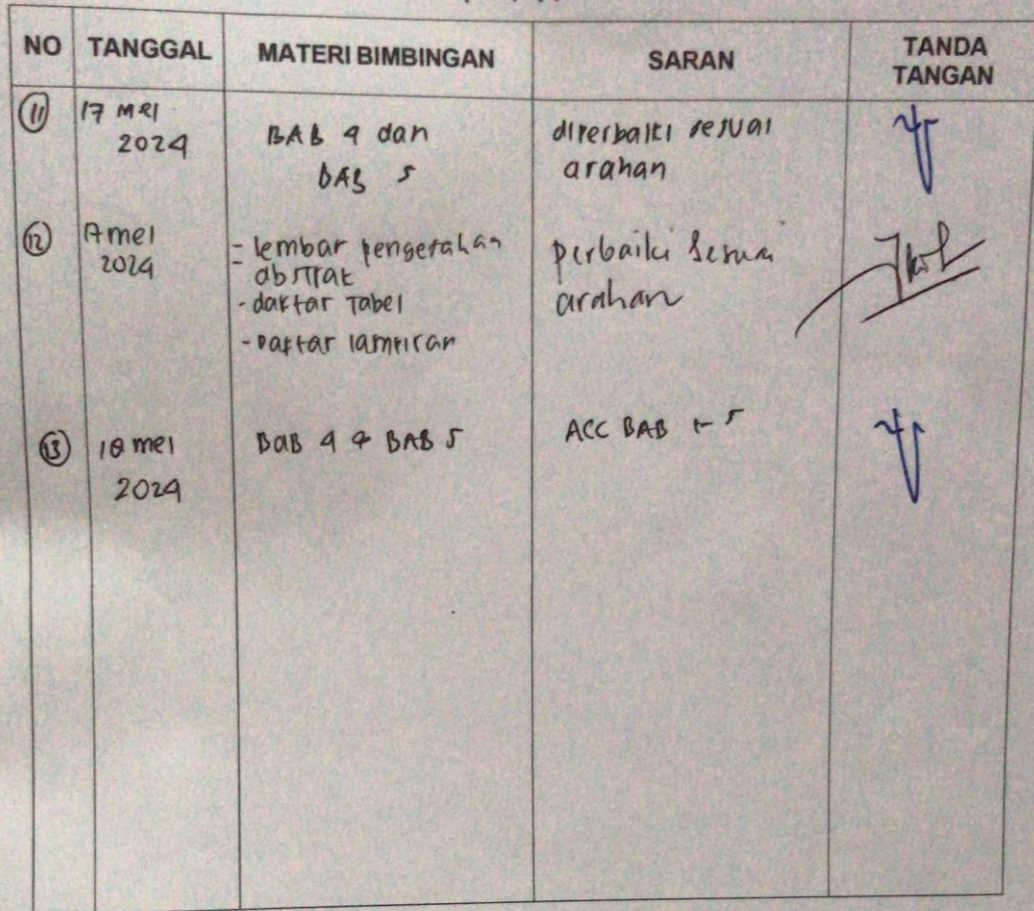 NO TANGGAL MATERI BIMBINGAN SARAN TANDA TANGAN
11 17 Mei 2024
BAB 4 dan
BAB 5
diperbaiki sesuai
arahan
12 mei 2024
- lembar pengesahan
- abstrak
- daftar Tabel
- Daftar lampiran
perbaiki sesuai
arahan
13 18 mei 2024
BAB 4 & BAB 5
ACC BAB 1-5